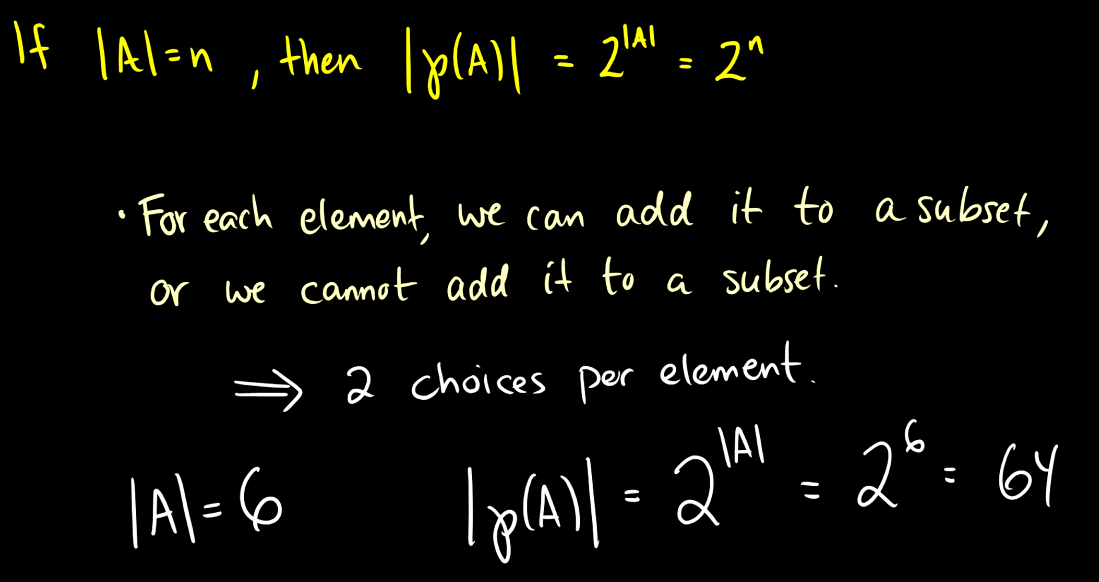 If |A|=n , then |℘(A)| = 2^|A| = 2^n
· For each element, we can add it to a subset,
or we cannot add it to a subset.
⟹ 2 choices per element.
|A|=6 |℘(A)| = 2^|A| = 2^6 = 64